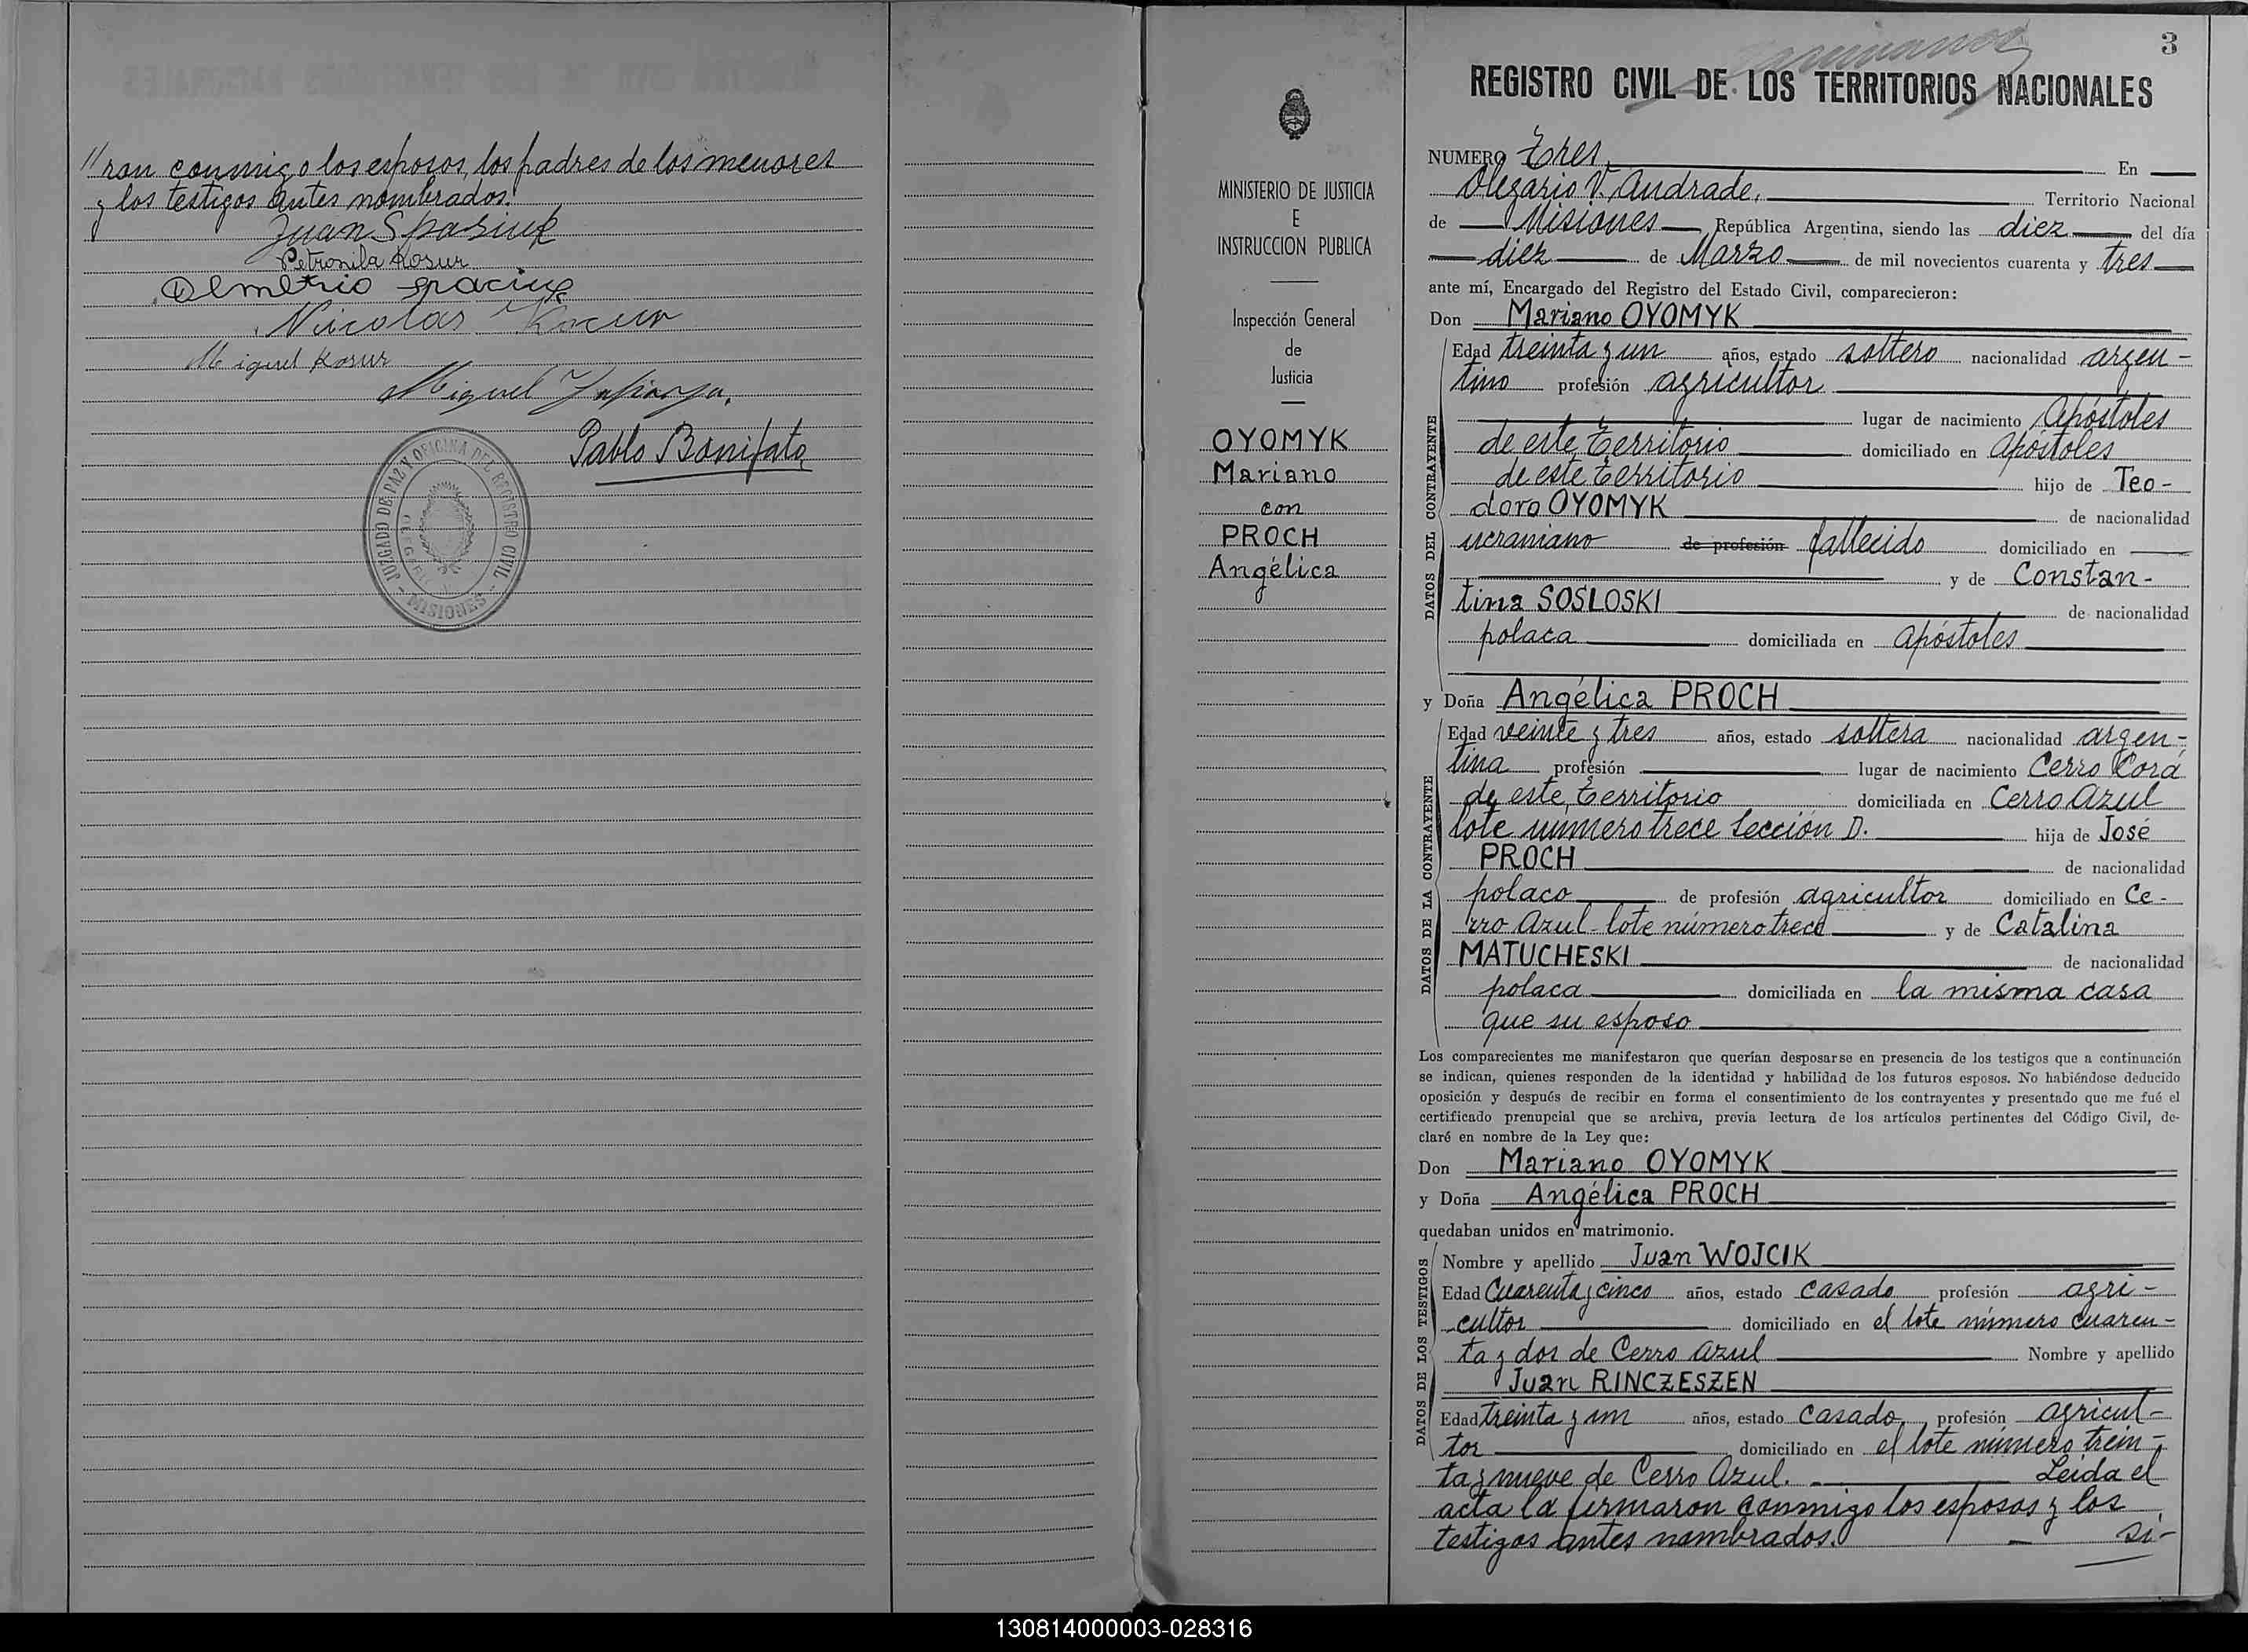 //ron conmigo los esposos, los padres de los menores
y los testigos antes nombrados.
Juan Spasiuk
Petronila Kosur
Demetrio
Nicolas
Miguel Kosur
Miguel
Pablo Bonifato
JUZGADO DE PAZ Y OFICINA DEL REGISTRO CIVIL - MISIONES -
3
REGISTRO CIVIL DE LOS TERRITORIOS NACIONALES
MINISTERIO DE JUSTICIA
E
INSTRUCCION PUBLICA
Inspección General
de
Justicia
OYOMYK
Mariano
con
PROCH
Angélica
NUMERO Tres En
Olegario V. Andrade, Territorio Nacional
de Misiones República Argentina, siendo las diez del día
diez de Marzo de mil novecientos cuarenta y tres
ante mí, Encargado del Registro del Estado Civil, comparecieron:
Don Mariano OYOMYK
DATOS DEL CONTRAYENTE
Edad treinta y un años, estado soltero nacionalidad argen-
tino profesión agricultor
lugar de nacimiento Apóstoles
de este territorio domiciliado en Apóstoles
de este territorio hijo de Teo-
doro OYOMYK de nacionalidad
ucraniano de profesión fallecido domiciliado en
y de Constan-
tina SOSLOSKI de nacionalidad
polaca domiciliada en Apóstoles
y Doña Angélica PROCH
DATOS DE LA CONTRAYENTE
Edad veinte y tres años, estado soltera nacionalidad argen-
tina profesión lugar de nacimiento Cerro Corá
de este territorio domiciliada en Cerro Azul
lote número trece Sección D. hija de José
PROCH de nacionalidad
polaco de profesión agricultor domiciliado en Ce-
rro Azul lote número trece y de Catalina
MATUCHESKI de nacionalidad
polaca domiciliada en la misma casa
que su esposo
Los comparecientes me manifestaron que querían desposarse en presencia de los testigos que a continuación
se indican, quienes responden de la identidad y habilidad de los futuros esposos. No habiéndose deducido
oposición y después de recibir en forma el consentimiento de los contrayentes y presentado que me fué el
certificado prenupcial que se archiva, previa lectura de los artículos pertinentes del Código Civil, de-
claré en nombre de la Ley que:
Don Mariano OYOMYK
y Doña Angélica PROCH
quedaban unidos en matrimonio.
DATOS DE LOS TESTIGOS
Nombre y apellido Juan WOJCIK
Edad Cuarenta y cinco años, estado casado profesión agri-
cultor domiciliado en el lote número cuaren-
ta y dos de Cerro Azul Nombre y apellido
Juan RINCZESZEN
Edad treinta y un años, estado casado, profesión agricul-
tor domiciliado en el lote número trein-
ta y nueve de Cerro Azul. Leída el
acta la firmaron conmigo los esposos y los
testigos antes nombrados. si-
130814000003-028316